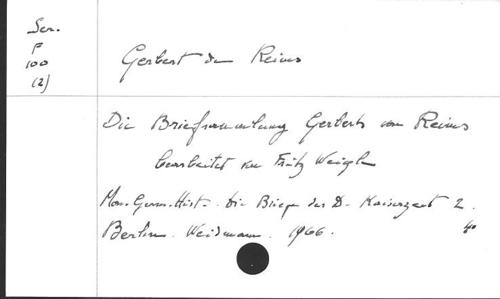 Ser.
P
100
(2)
Gerbert de Reims
Die Briefsammlung Gerberts von Reims
bearbeitet von Fritz Weigle
Mon. Germ. Hist. Die Briefe der D. Kaiserzeit 2.
Berlin. Weidmann. 1966.
4º